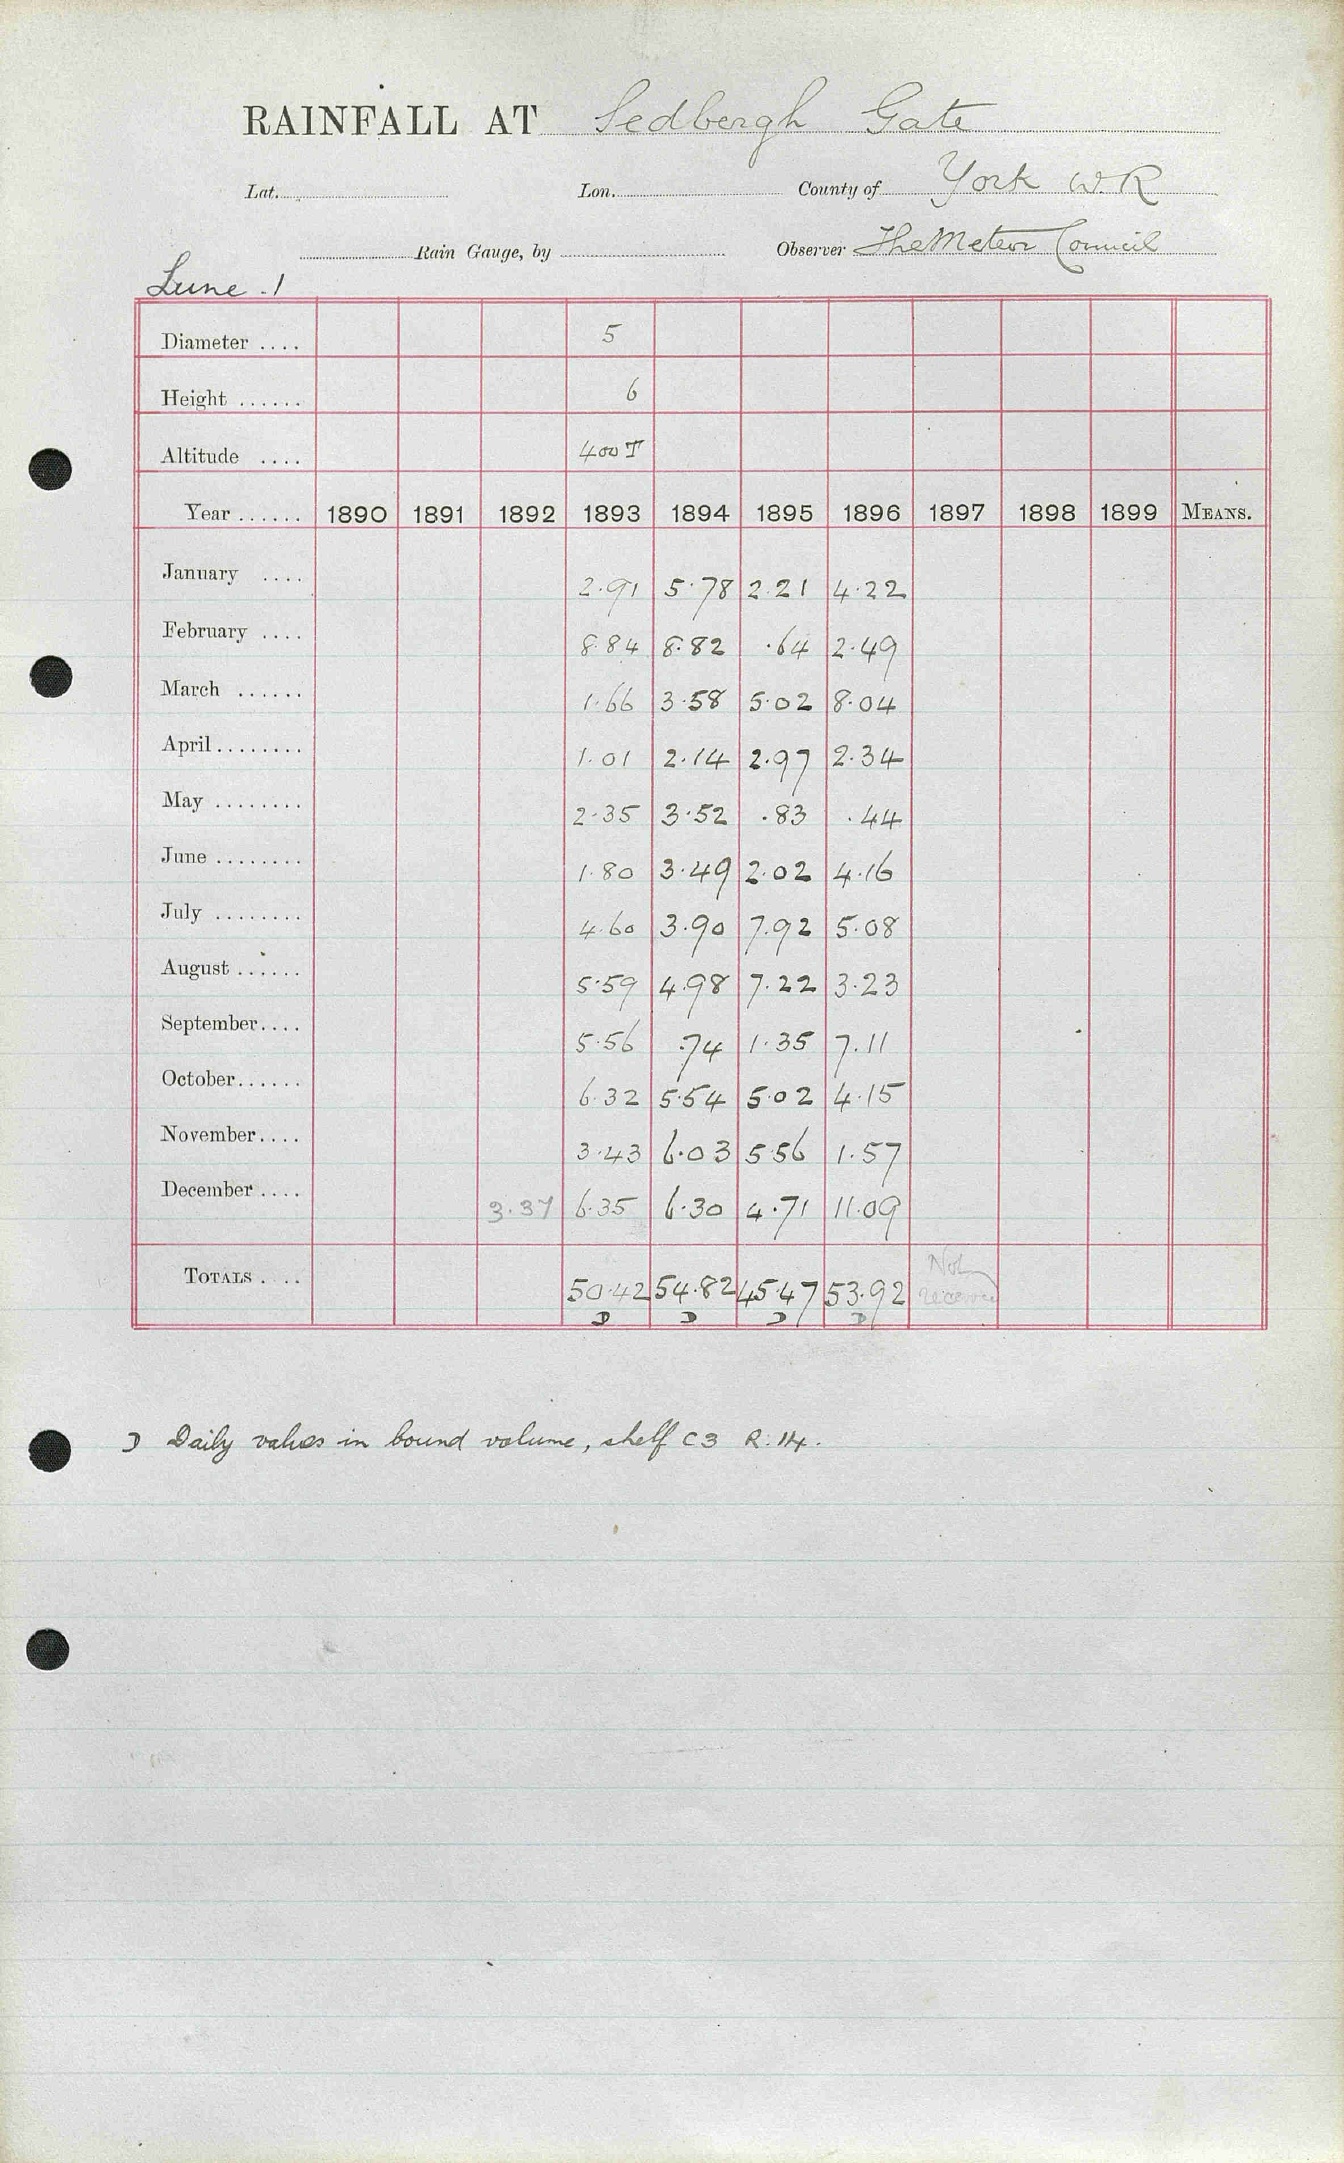 RAINFALL AT Sedbergh Gate
Lat. Lon. County of York W.R
Rain Gauge, by Observer The Meteor Council
Lune. 1
Diameter .... 5
Height ...... 6
Altitude .... 400 T
Year ...... 1890 1891 1892 1893 1894 1895 1896 1897 1898 1899 MEANS.
January .... 2.91 5.78 2.21 4.22
February .... 8.84 8.82 .64 2.49
March ...... 1.66 3.58 5.02 8.04
April ........ 1.01 2.14 2.97 2.34
May ........ 2.35 3.52 .83 .44
June ........ 1.80 3.49 2.02 4.16
July ........ 4.60 3.90 7.92 5.08
August ...... 5.59 4.98 7.22 3.23
September.... 5.56 .74 1.35 7.11
October...... 6.32 5.54 5.02 4.15
November.... 3.43 6.03 5.56 1.57
December .... 3.37 6.35 6.30 4.71 11.09
TOTALS .... 50.42 54.82 45.47 53.92 Not received
D D D D
D Daily values in bound volume, shelf C3 R.14.